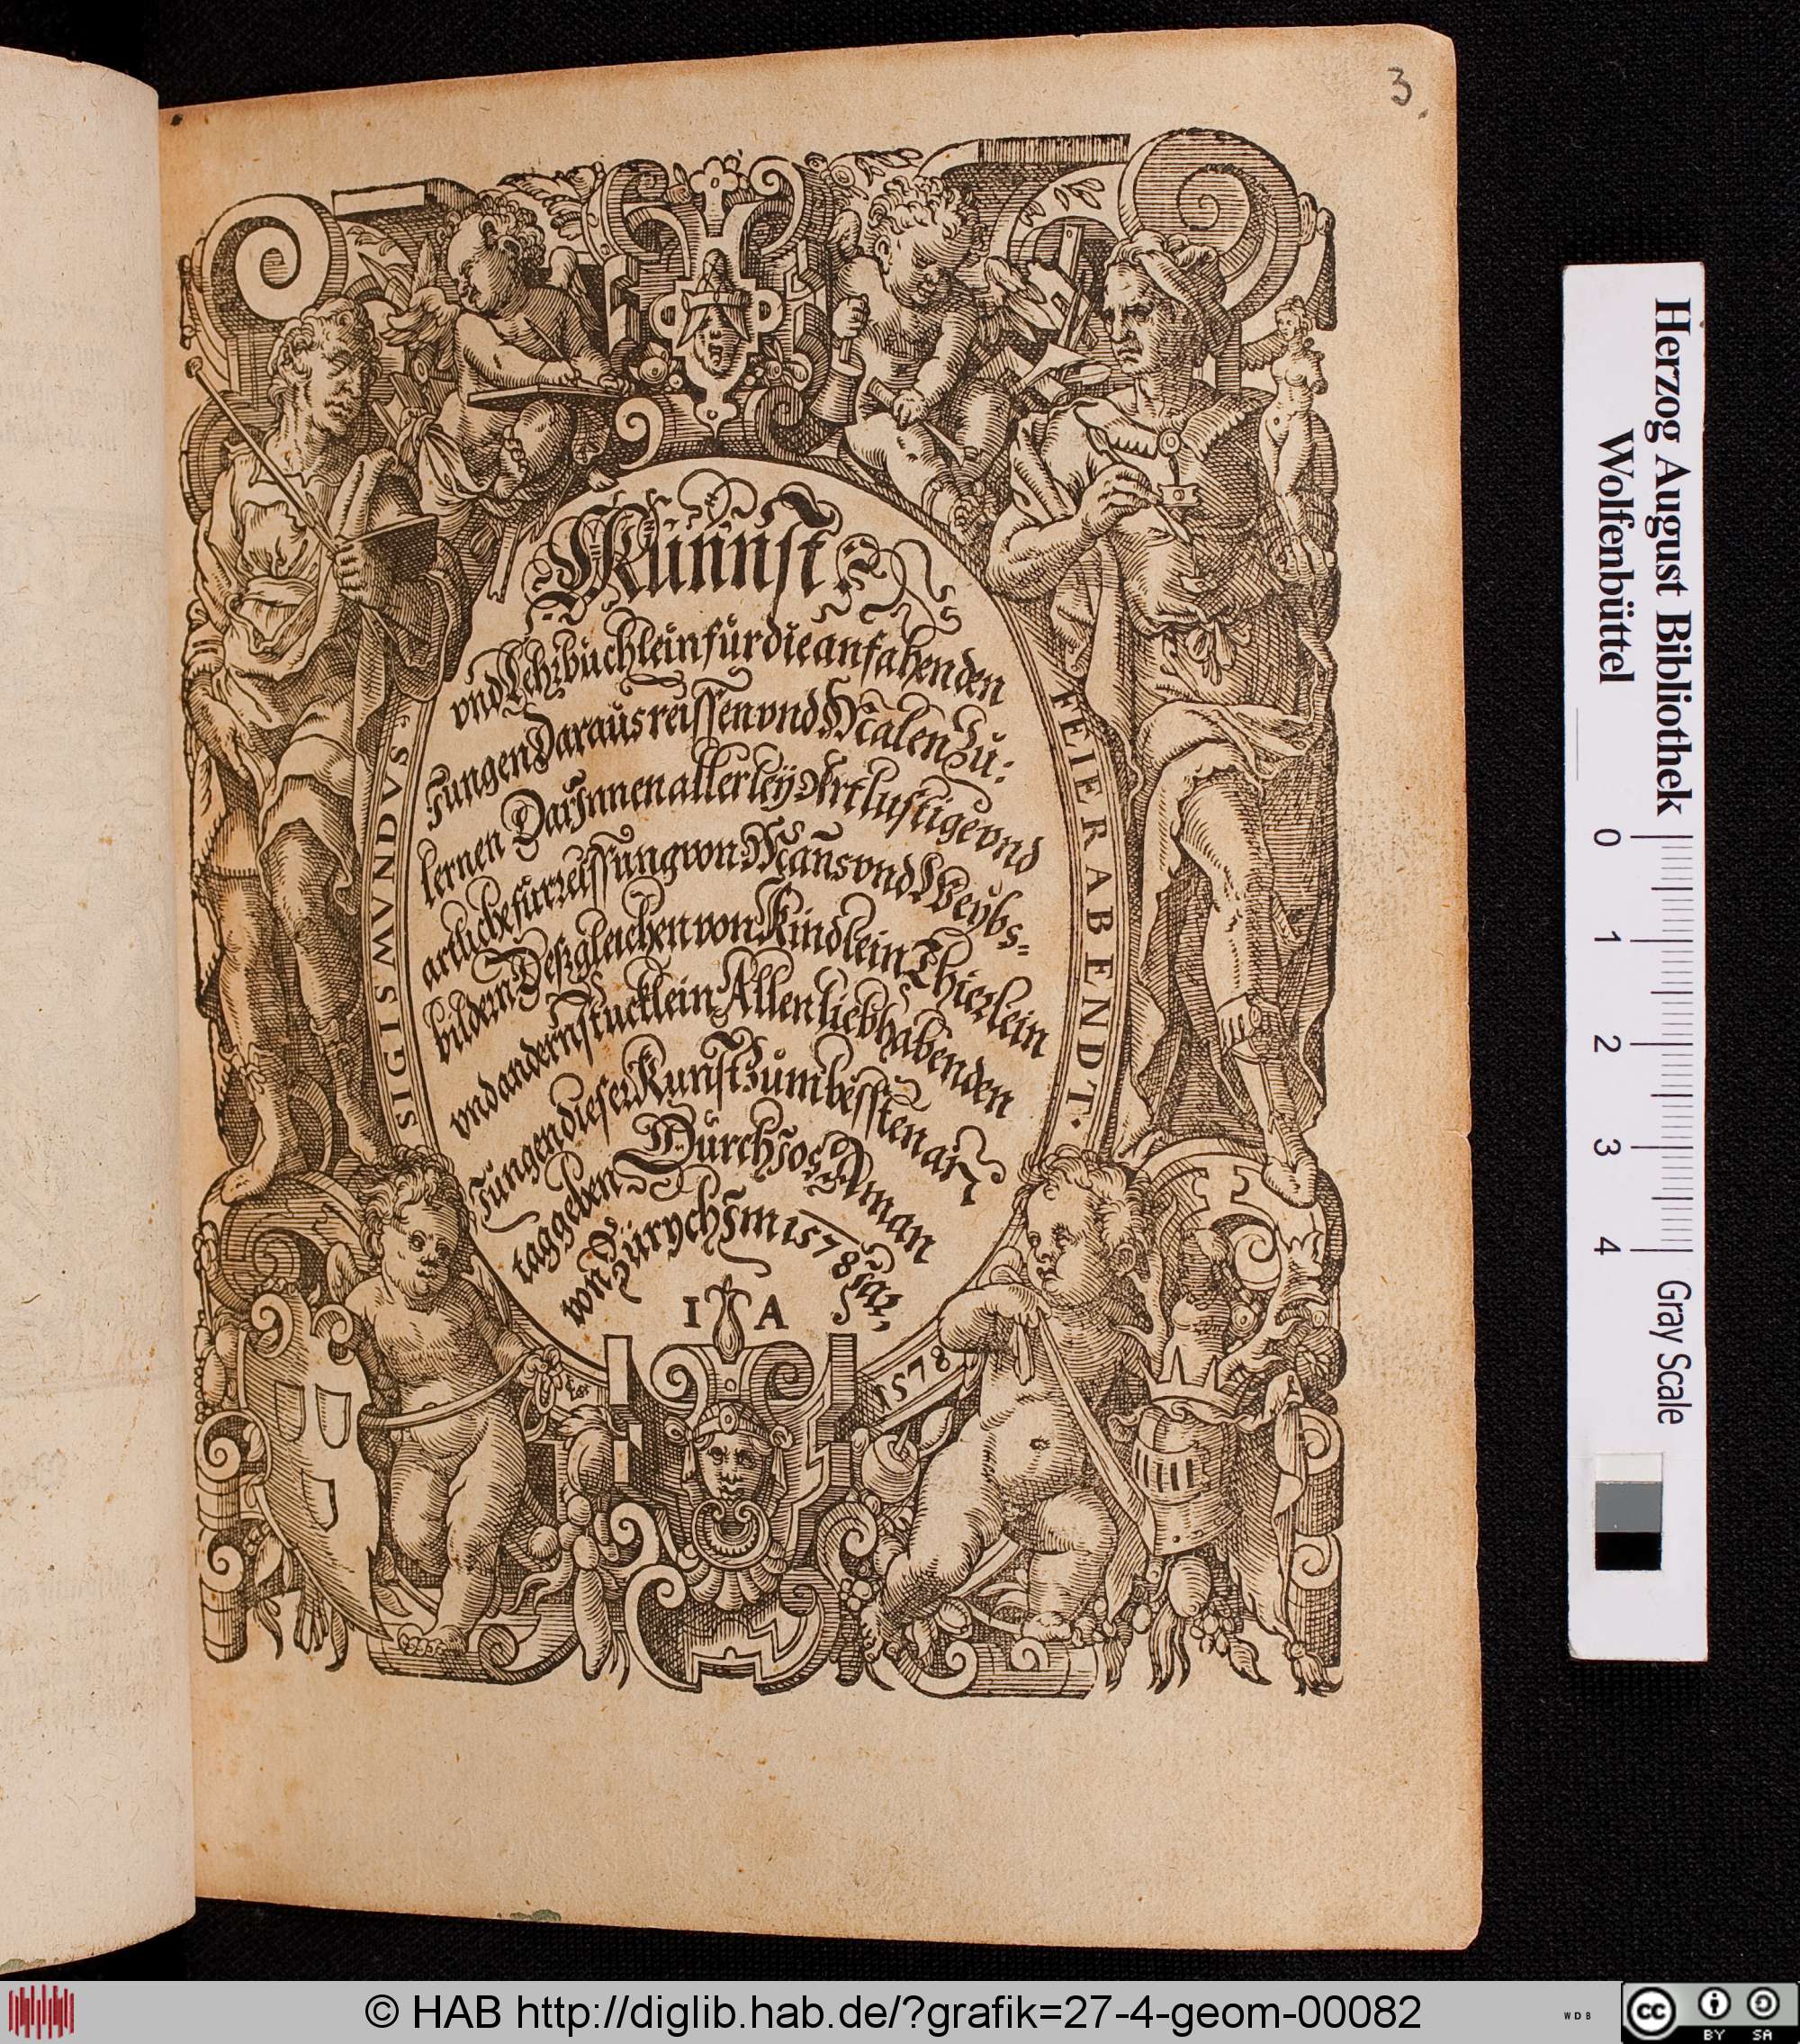 3
Künnst
vnd Lehrbüchlein für die anfahenden
Jungen Daraus reissen vnd Malen Zu:
lernen Darinnen allerleÿ Art lustige vnd
artliche fürreissung von Mans vnd Weybs=
bildern Deßgleichen von Kindlein Thierlein
vnd andern stucklein Allen liebhabenden
Jungen dieser Kunst Zum bessten an
tag geben Durch Jos Aman
von Zürych Im 1578 Jar.
I A
SIGISMVNDVS
FEIERABENDT.
1578
Herzog August Bibliothek
Wolfenbüttel
0 1 2 3 4
Gray Scale
© HAB http://diglib.hab.de/?grafik=27-4-geom-00082
WDB
cc
BY SA